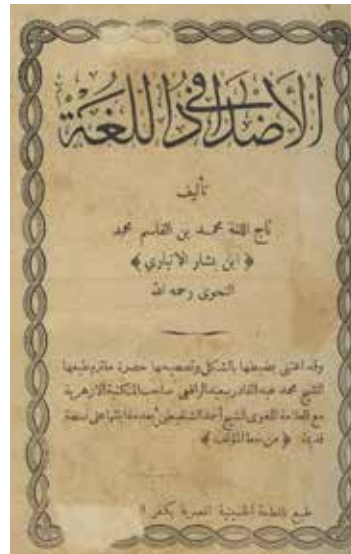 الأضداد في اللغة
تأليف
تاج اللغة محمد بن القاسم محمد
﴿ ابن بشار الانباري ﴾
النحوى رحمه الله
وقد اعتنى بضبطها بالشكل وتصحيحها حضرة ملتزم طبعها
الشيخ محمد عبد القادر سعيد الرافعى صاحب المكتبة الازهرية
مع العلامة اللغوى الشيخ أحمد الشنقيطى بعد مقابلتها على نسخة
قديمة ﴿ من خط المؤلف ﴾
طبع بالمطبعة الحسينية المصرية بكفر